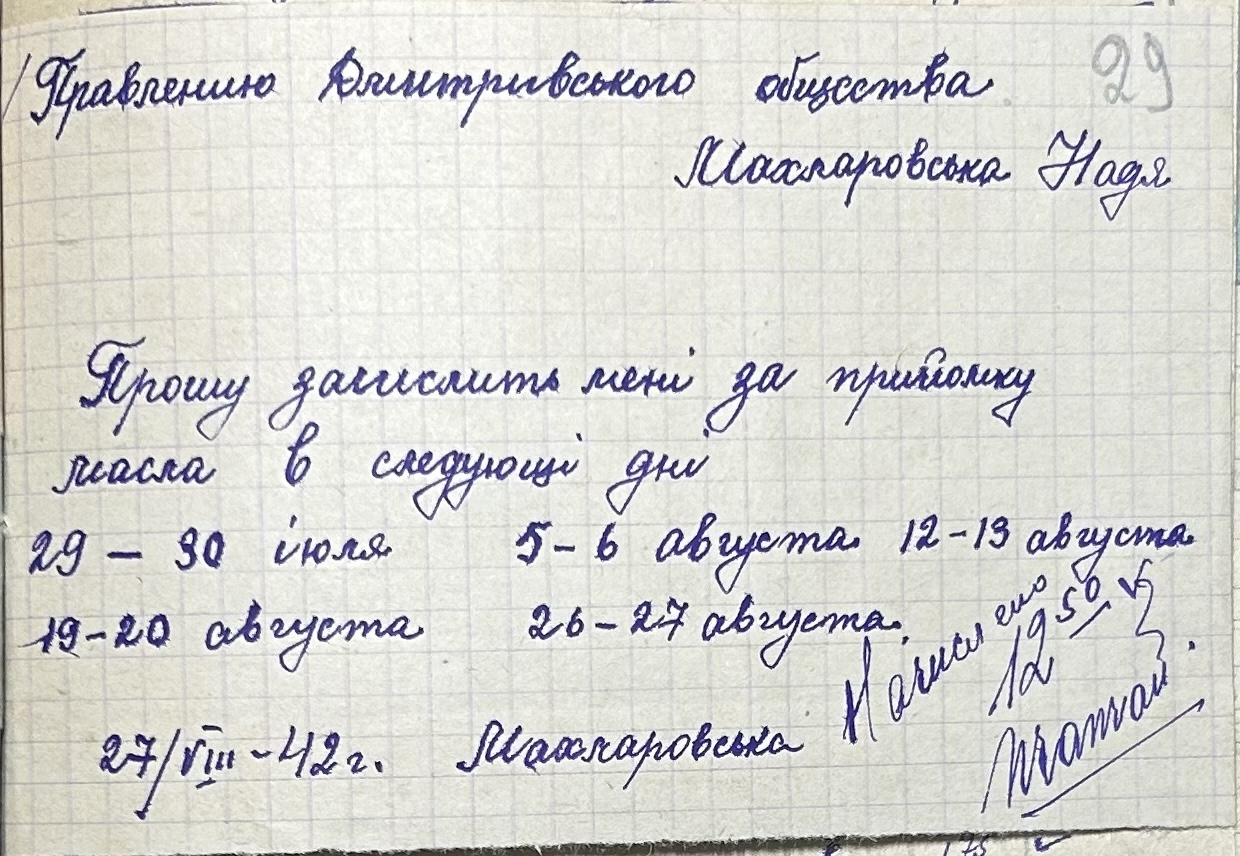 29
Правлению Дмитрівського общества
Махмаровська Надя
Прошу зачислить мені за прийомку
масла в следующі дні
29 – 30 іюля 5-6 августа 12-13 августа
19-20 августа 26-27 августа.
Начислено
12 50
27/VIII-42 г. Махмаровська
175